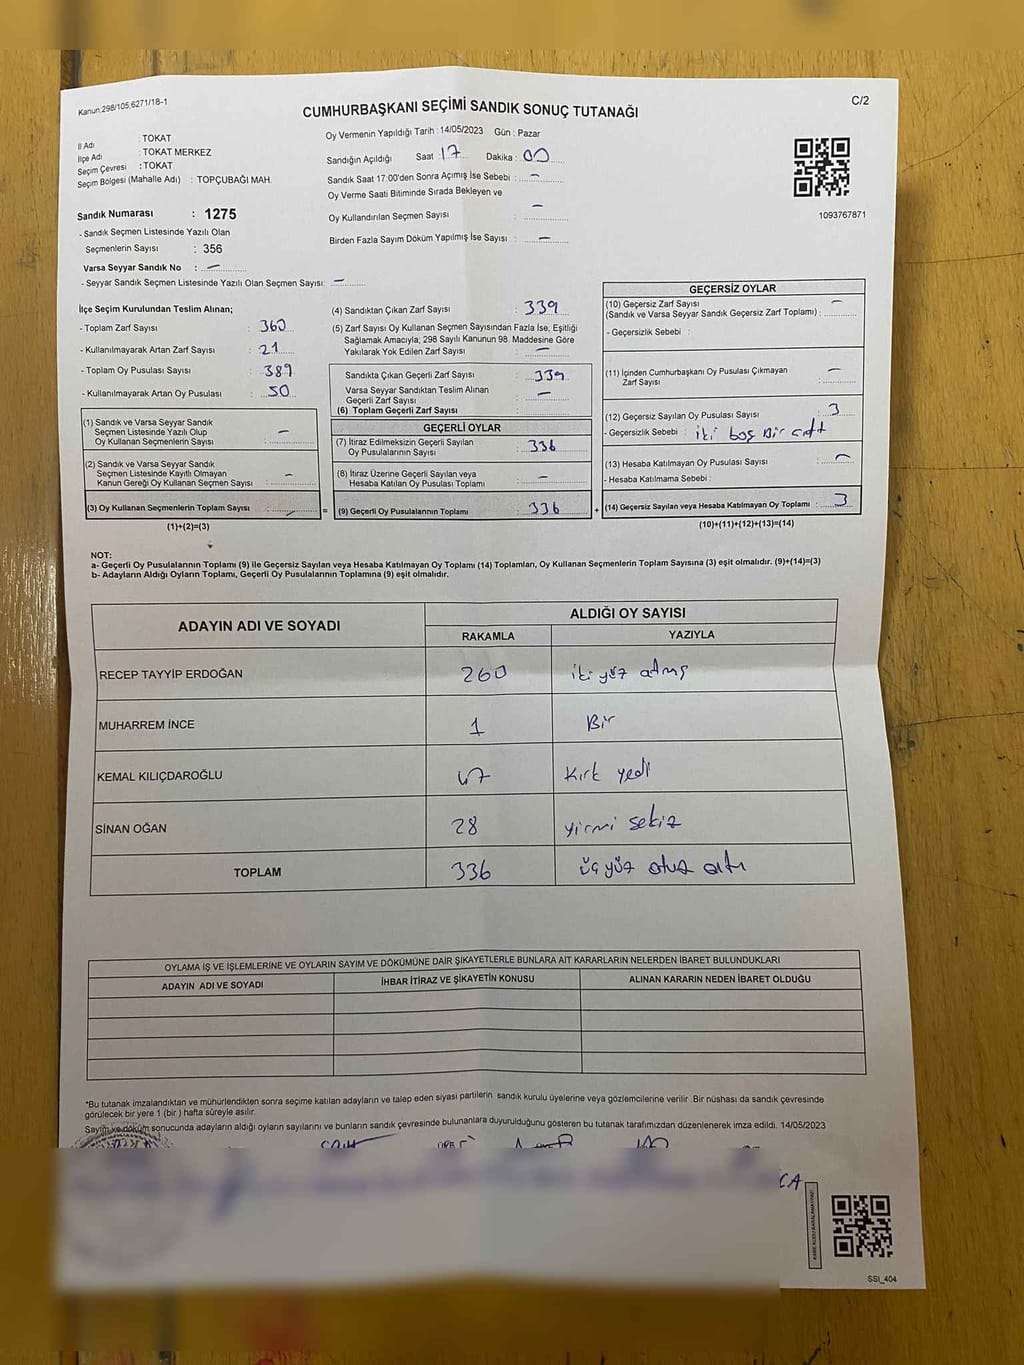 Kanun:298/105,6271/18-1
CUMHURBAŞKANI SEÇİMİ SANDIK SONUÇ TUTANAĞI
C/2
İl Adı : TOKAT
İlçe Adı : TOKAT MERKEZ
Seçim Çevresi : TOKAT
Seçim Bölgesi (Mahalle Adı) : TOPÇUBAĞI MAH.
Sandık Numarası : 1275
- Sandık Seçmen Listesinde Yazılı Olan
Seçmenlerin Sayısı : 356
Varsa Seyyar Sandık No : –
- Seyyar Sandık Seçmen Listesinde Yazılı Olan Seçmen Sayısı: –
Oy Vermenin Yapıldığı Tarih : 14/05/2023 Gün : Pazar
Sandığın Açıldığı Saat : 17 Dakika : 00
Sandık Saat 17:00'den Sonra Açımış İse Sebebi : –
Oy Verme Saati Bitiminde Sırada Bekleyen ve
Oy Kullandırılan Seçmen Sayısı : –
Birden Fazla Sayım Döküm Yapılmış İse Sayısı : –
1093767871
İlçe Seçim Kurulundan Teslim Alınan;
- Toplam Zarf Sayısı : 360
- Kullanılmayarak Artan Zarf Sayısı : 21
- Toplam Oy Pusulası Sayısı : 389
- Kullanılmayarak Artan Oy Pusulası : 50
(1) Sandık ve Varsa Seyyar Sandık
Seçmen Listesinde Yazılı Olup
Oy Kullanan Seçmenlerin Sayısı : –
(2) Sandık ve Varsa Seyyar Sandık
Seçmen Listesinde Kayıtlı Olmayan
Kanun Gereği Oy Kullanan Seçmen Sayısı : –
(3) Oy Kullanan Seçmenlerin Toplam Sayısı : –
(1)+(2)=(3)
(4) Sandıktan Çıkan Zarf Sayısı : 339
(5) Zarf Sayısı Oy Kullanan Seçmen Sayısından Fazla İse, Eşitliği
Sağlamak Amacıyla; 298 Sayılı Kanunun 98. Maddesine Göre
Yakılarak Yok Edilen Zarf Sayısı : –
Sandıkta Çıkan Geçerli Zarf Sayısı : 339
Varsa Seyyar Sandıktan Teslim Alınan
Geçerli Zarf Sayısı : –
(6) Toplam Geçerli Zarf Sayısı :
GEÇERLİ OYLAR
(7) İtiraz Edilmeksizin Geçerli Sayılan
Oy Pusulalarının Sayısı : 336
(8) İtiraz Üzerine Geçerli Sayılan veya
Hesaba Katılan Oy Pusulası Toplamı : –
= (9) Geçerli Oy Pusulalarının Toplamı : 336 +
GEÇERSİZ OYLAR
(10) Geçersiz Zarf Sayısı
(Sandık ve Varsa Seyyar Sandık Geçersiz Zarf Toplamı) : –
- Geçersizlik Sebebi :
(11) İçinden Cumhurbaşkanı Oy Pusulası Çıkmayan
Zarf Sayısı : –
(12) Geçersiz Sayılan Oy Pusulası Sayısı : 3
- Geçersizlik Sebebi : iki boş Bir çift
(13) Hesaba Katılmayan Oy Pusulası Sayısı : –
- Hesaba Katılmama Sebebi :
(14) Geçersiz Sayılan veya Hesaba Katılmayan Oy Toplamı : 3
(10)+(11)+(12)+(13)=(14)
NOT:
a- Geçerli Oy Pusulalarının Toplamı (9) ile Geçersiz Sayılan veya Hesaba Katılmayan Oy Toplamı (14) Toplamları, Oy Kullanan Seçmenlerin Toplam Sayısına (3) eşit olmalıdır. (9)+(14)=(3)
b- Adayların Aldığı Oyların Toplamı, Geçerli Oy Pusulalarının Toplamına (9) eşit olmalıdır.
ADAYIN ADI VE SOYADI
ALDIĞI OY SAYISI
RAKAMLA YAZIYLA
RECEP TAYYİP ERDOĞAN 260 iki yüz atmış
MUHARREM İNCE 1 Bir
KEMAL KILIÇDAROĞLU 47 Kırk yedi
SİNAN OĞAN 28 yirmi sekiz
TOPLAM 336 üç yüz otuz altı
OYLAMA İŞ VE İŞLEMLERİNE VE OYLARIN SAYIM VE DÖKÜMÜNE DAİR ŞİKAYETLERLE BUNLARA AİT KARARLARIN NELERDEN İBARET BULUNDUKLARI
ADAYIN ADI VE SOYADI İHBAR İTİRAZ VE ŞİKAYETİN KONUSU ALINAN KARARIN NEDEN İBARET OLDUĞU
*Bu tutanak imzalandıktan ve mühürlendikten sonra seçime katılan adayların ve talep eden siyasi partilerin sandık kurulu üyelerine veya gözlemcilerine verilir .Bir nüshası da sandık çevresinde
görülecek bir yere 1 (bir ) hafta süreyle asılır.
Sayım ve döküm sonucunda adayların aldığı oyların sayılarını ve bunların sandık çevresinde bulunanlara duyurulduğunu gösteren bu tutanak tarafımızdan düzenlenerek imza edildi. 14/05/2023
CA
SSI_404